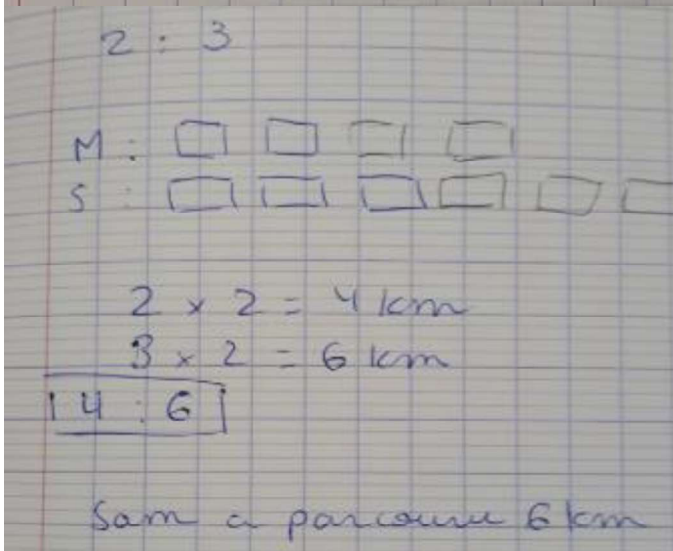 2 : 3
M :
S :
2 x 2 = 4 km
3 x 2 = 6 km
4 : 6
Sam a parcouru 6 km